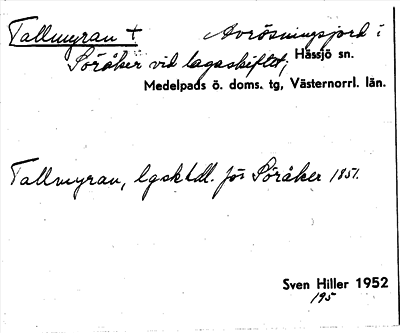 Tallmyran † Avrösningsjord i
Söråker vid lagaskiftet; Hässjö sn.
Medelpads ö. doms. tg, Västernorrl. län.
Tallmyran, lgsk hdl. för Söråker 1851.
Sven Hiller 1952
195